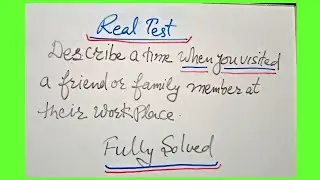 Real Test
Describe a time when you visited
a friend or family member at
their workplace.
Fully Solved